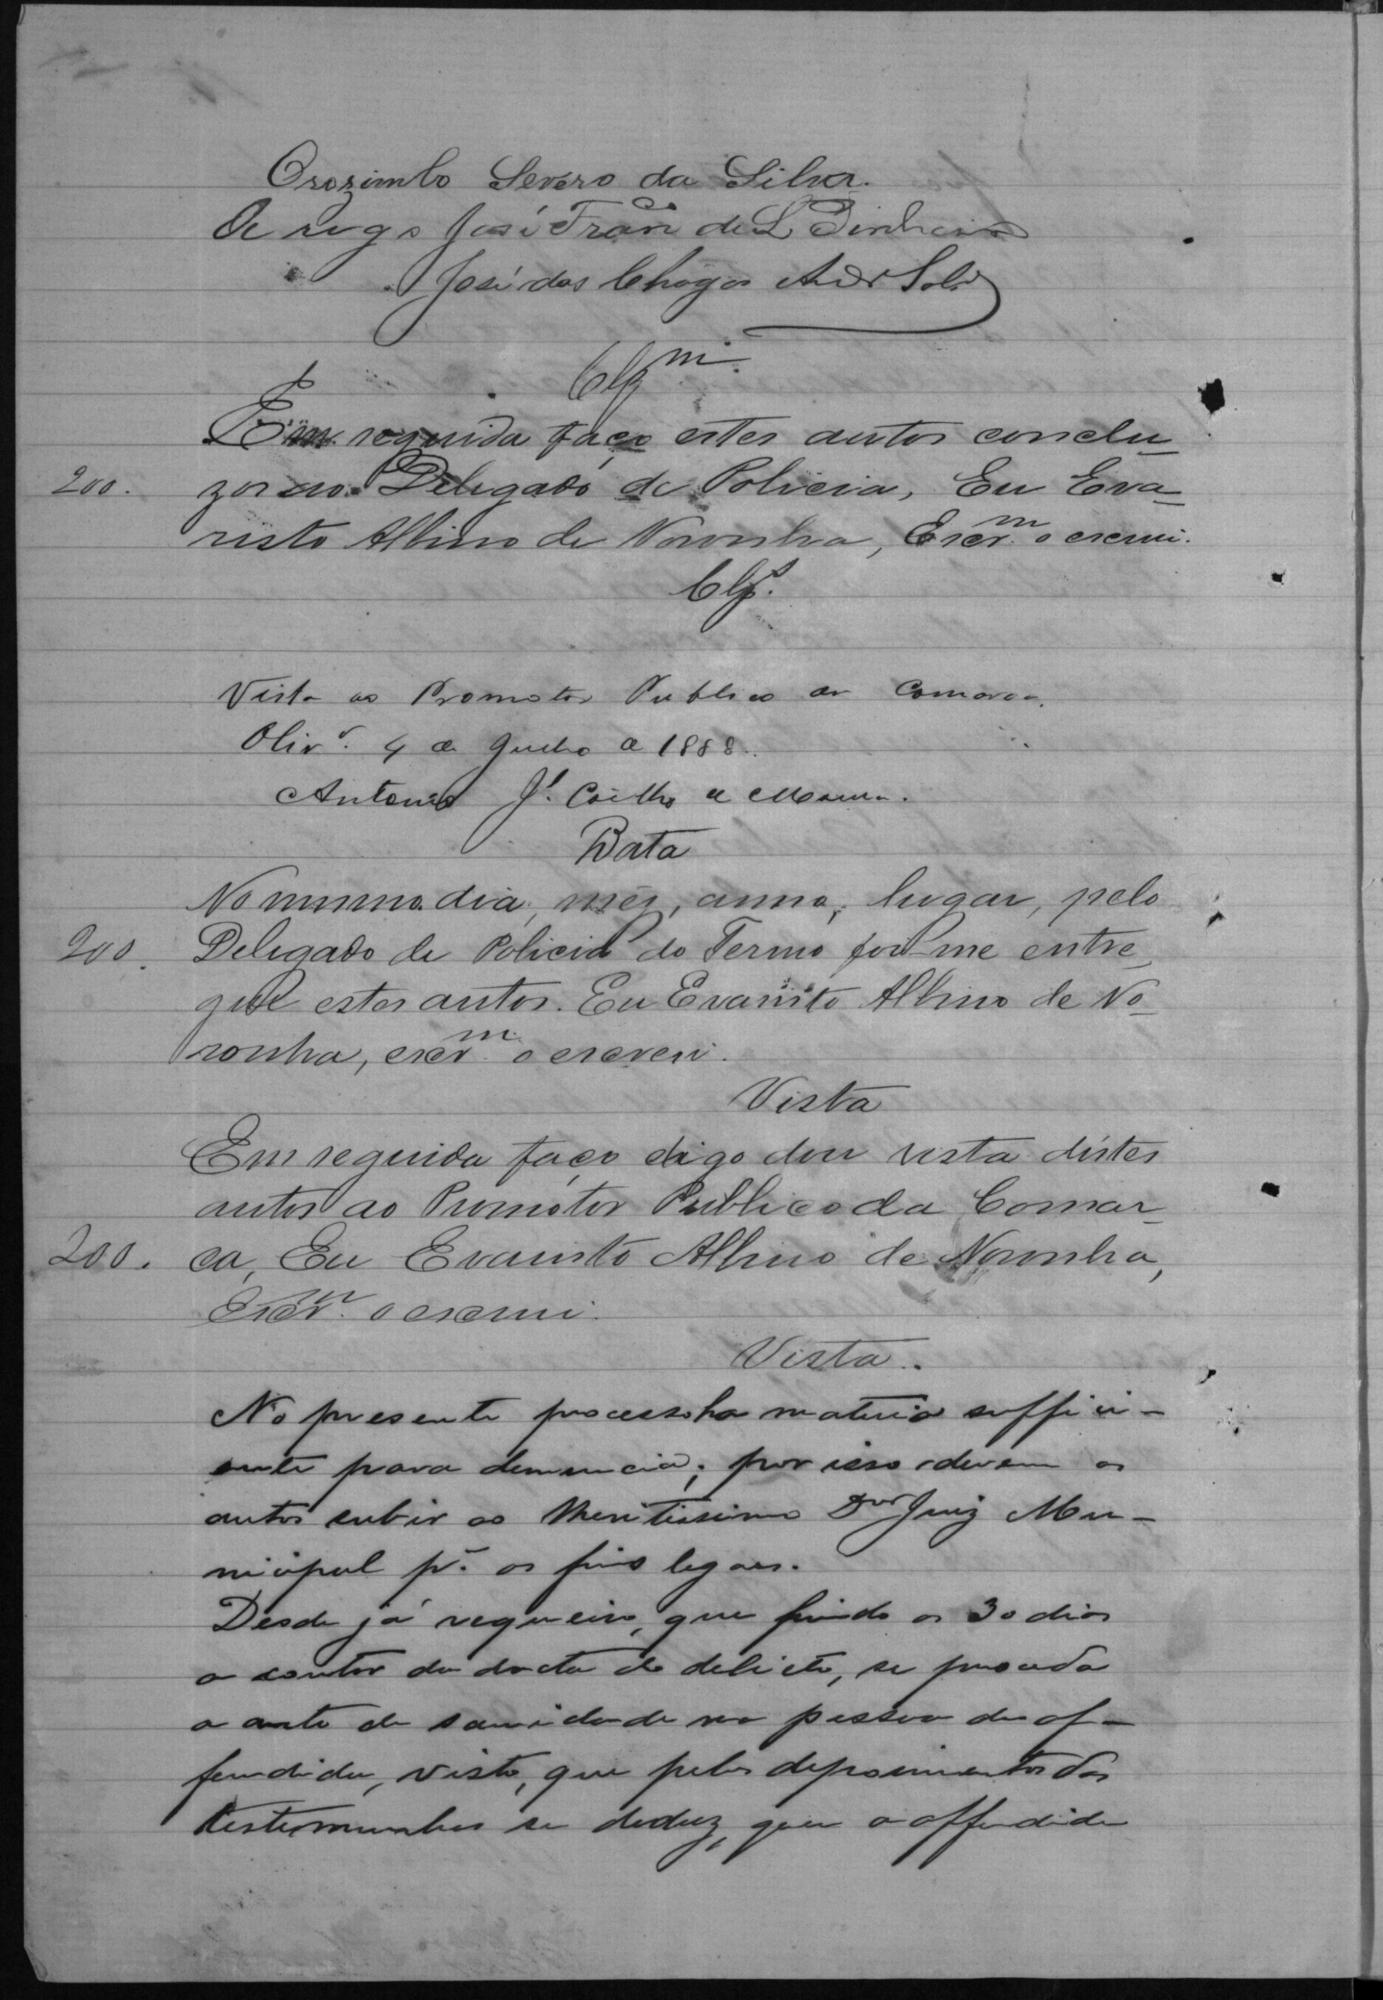 Orozimbo Severo da Silva.
A rogo José Fran.co de L Pinheiro
José das Chagas Andr
Clz.m
Em seguida faço estes autos conclu-
200. zos ao Delegado de Policia, Eu Eva-
risto Albino de Noronha, Escr.m o escrevi.
Clz.s
Vista ao Promotor Publico da Comarca.
Olivr.a 4 de Junho de 1888.
Antonio J.e Coelho de Moura.
Data
No mesmo dia, mez, anno, lugar, pelo
200. Delegado de Policia do Termo foi-me entre
gue estes autos. Eu Evaristo Albino de No-
ronha, escr.m o escrevi.
Vista
Em seguida faço digo dou vista d'estes
autos ao Promotor Publico da Comar-
200. ca, Eu Evaristo Albino de Noronha,
Escr.m o escrevi.
Vista.
No presente processo ha materia suffici-
ente para denuncia; por isso devem os
autos subir ao Meritissimo Dor Juiz Mu-
nicipal p.a os fins legaes.
Desde já requeiro, que findo os 30 dias
a contar da data do delicto, se proceda
a auto de sanidade na pessoa do of-
fendido, visto, que pelos depoimentos das
testemunhas se deduz, que o offendido